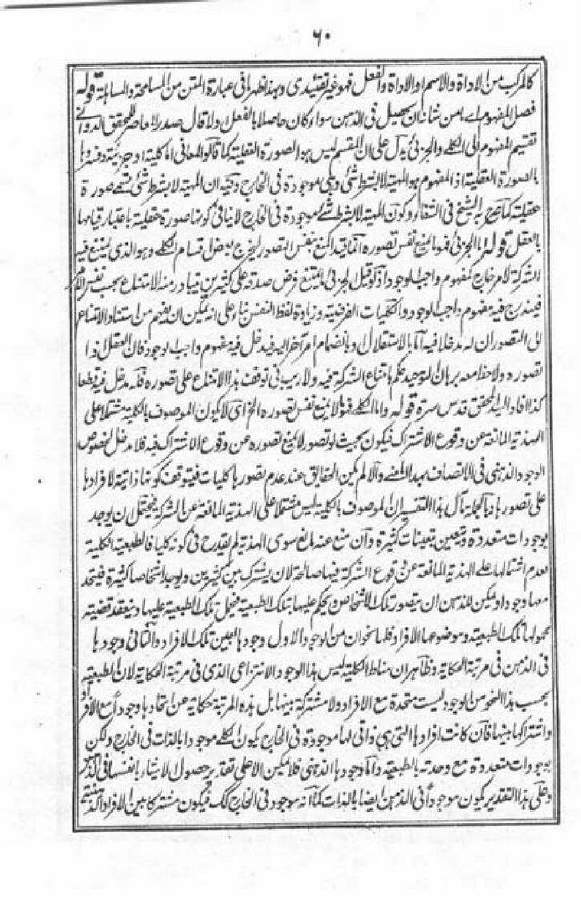 ۶۰
كالمركب من الاداة والاسم او الاداة والفعل فهو غير تقييدى وبهذا ظهر ما فى عبارة المتن من المسامحة والمساهلة قوله
فصل المفهوم اى ما من شانه ان يحصل فى الذهن سواء كان حاصلا بالفعل او لا قال صدر المحقق الدوانى
تقسيم المفهوم الى الكلى والجزئى يدل على ان المقسم ليس هو الصورة العقلية كما قالوا المعانى اما كلية او جزئية
بالصورة العقلية اذ المفهوم هو المهية لا بشرط شئ وهى موجودة فى الخارج وفيه ان المهية لا بشرط شئ صورة
عقلية كما صرح به الشيخ فى الشفاء وكون المهية لا بشرط شئ موجودة فى الخارج لا ينافى كونها صورة عقلية باعتبار قيامها
بالعقل قوله اما جزئى فهو ما يمنع نفس تصوره انما قيد المنع بنفس التصور ليخرج بعض اقسام الكلى وهو الذى يمتنع فيه
الشركة لامر خارج كمفهوم واجب الوجود اذ لو قيل الجزئى ما يمتنع فرض صدقه على كثيرين يتبادر منه الامتناع بحسب نفس الامر
فيندرج فيه مفهوم واجب الوجود والكليات الفرضية وزيادة لفظ النفس بناء على انه يمكن ان يفهم من استناد الامتناع
الى التصور ان له مدخلا فيه اما بالاستقلال او بانضمام امر آخر اليه فيدخل فيه مفهوم واجب الوجود فان العقل اذا
تصوره ولاحظ معه برهان التوحيد حكم بامتناع الشركة فيه ولا ريب فى توقف هذا الامتناع على تصوره فله مدخل فيه قطعا
كذا افاد السيد المحقق قدس سره قوله واما كلى فهو ما لا يمنع نفس تصوره الخ اى لا يكون الموصوف بالكلية مشتملا على
الهذية المانعة عن وقوع الاشتراك فيكون بحيث لو تصور لا يمنع تصوره عن وقوع الاشتراك فيه فلا مدخل لخصوص
الوجود الذهنى فى الاتصاف بهذا المعنى والا لم يكن الحقائق عند عدم تصورها كليات فيتوقف كونها ذاتية لافرادها
على تصورها وبالجملة مآل هذا التفسير ان الموصوف بالكلية ليس مشتملا على الهذية المانعة عن الشركة فيحتمل ان يوجد
بوجودات متعددة وتتعين بتعينات كثيرة وان منع عنه مانع سوى الهذية لم يقدح فى كونه كليا فالطبيعة الكلية
لعدم اشتمالها على الهذية المانعة عن وقوع الشركة فيها صالحة لان يشترك بين كثيرين ويوجد اشخاصا كثيرة فيتحد
معها وجودا ويمكن للذهن ان يتصور تلك الاشخاص ويحكم عليها بتلك الطبيعة فيحمل تلك الطبيعة عليها وينعقد قضية
محمولها تلك الطبيعة وموضوعها الافراد فلها نحوان من الوجود الاول وجودها بعين تلك الافراد والثانى وجودها
فى الذهن فى مرتبة الحكاية وظاهر ان مناط الكلية ليس هذا الوجود الانتزاعى الذى فى مرتبة الحكاية لان الطبيعة
بحسب هذا النحو من الوجود ليست متحدة مع الافراد ولا مشتركة بينها بل هذه المرتبة حكاية عن اتحادها وجودا مع الافراد
واشتراكها بينها فان كانت افرادها التى هى ذاتى لها موجودة فى الخارج يكون الكلى موجودا بالذات فى الخارج ولكن
بوجودات متعددة مع وحدته بالطبيعة واما وجودها الذهنى فلا يمكن الا على تقدير حصول الاشياء بانفسها فى الذهن
وعلى هذا التقدير يكون موجودا فى الذهن ايضا بالذات كما انه موجود فى الخارج كك فيكون مشتركا بين الافراد